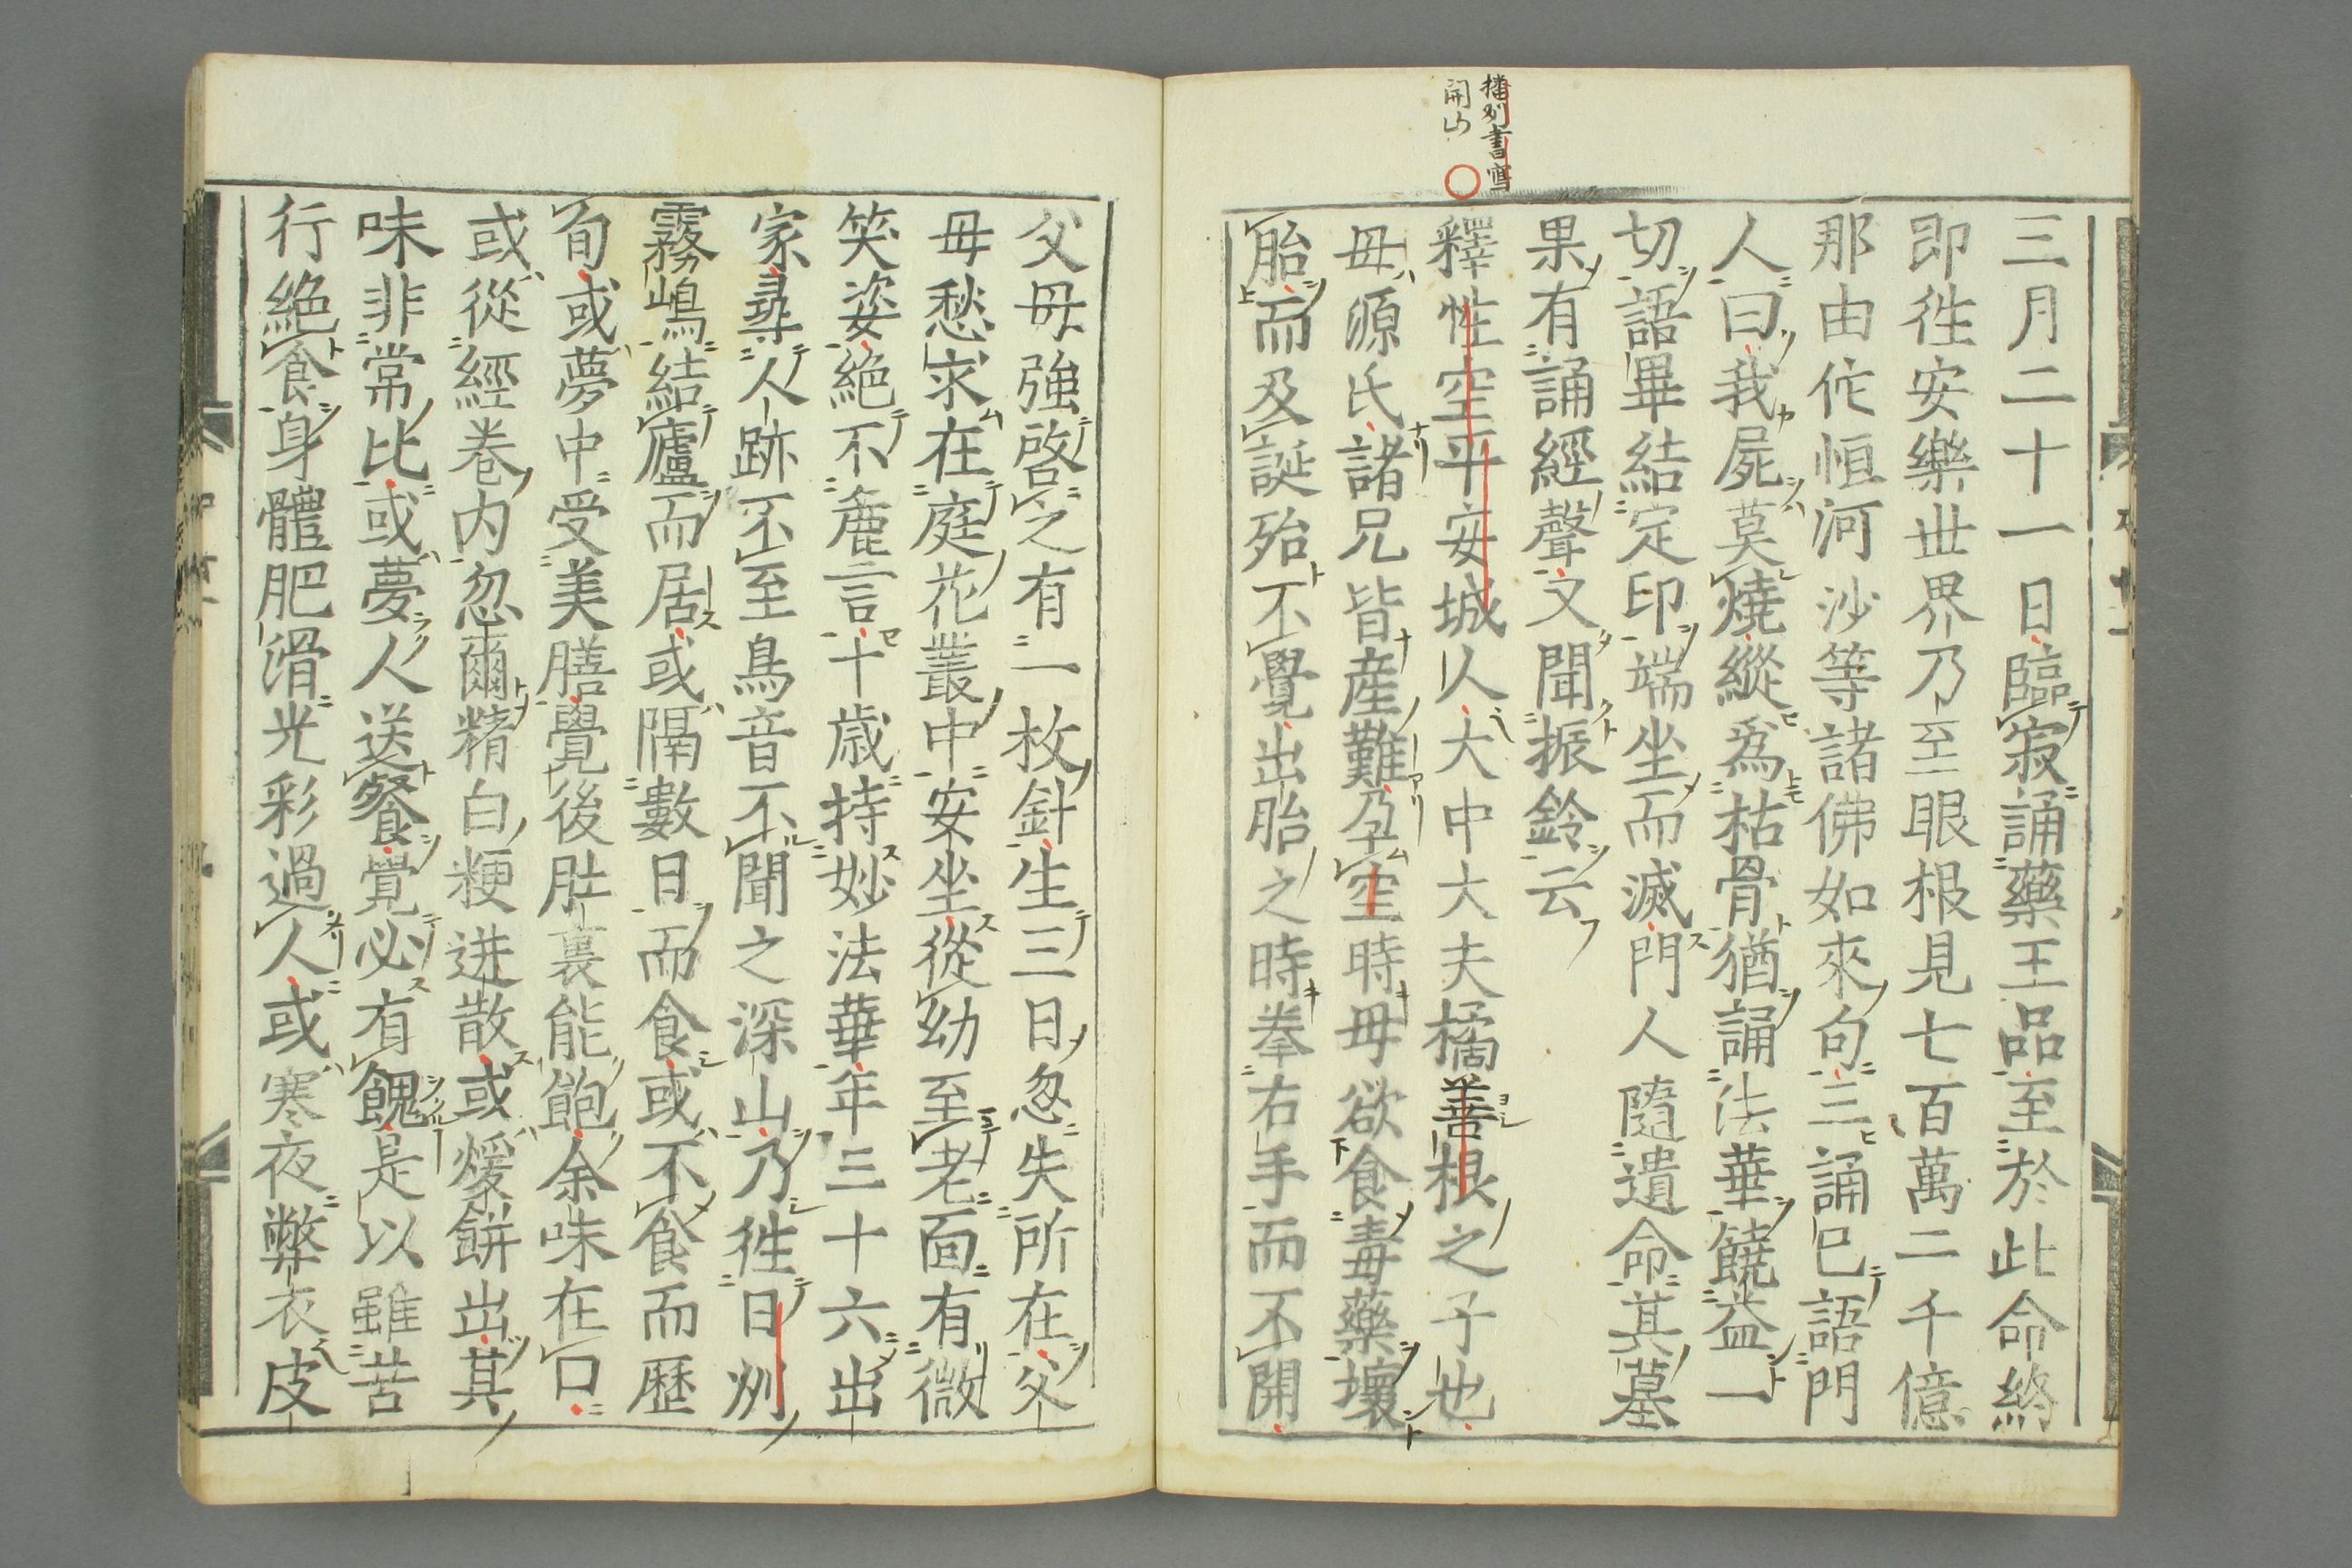 播州書寫
開山
三月二十一日臨寂誦藥王品至於此命終
即徃安樂丗界乃至眼根見七百萬二千億
那由佗恒河沙等諸佛如來句三誦已語門
人曰我屍莫燒縱爲枯骨猶誦法華饒益一
切語畢結定印端坐而滅門人隨遺命其墓
果有誦經聲又聞振鈴云
釋性空平安城人大中大夫橘善根之子也
母源氏諸兄皆産難孕空時母欲食毒藥壞
胎而及誕殆不覺出胎之時拳右手而不開
父母強啓之有一枚針生三日忽失所在父
母愁求在庭花叢中安坐從幼至老面有微
笑姿絶不麁言十歳持妙法華年三十六出
家尋人跡不至鳥音不聞之深山乃徃日州
霧嶋結廬而居或隔數日而食或不食而歷
旬或夢中受美膳覺後肚裏能飽余味在口
或從經卷内忽爾精白粳迸散或煖餅出其
味非常比或夢人送餐覺必有餽是以雖苦
行絶食身體肥滑光彩過人或寒夜弊衣皮